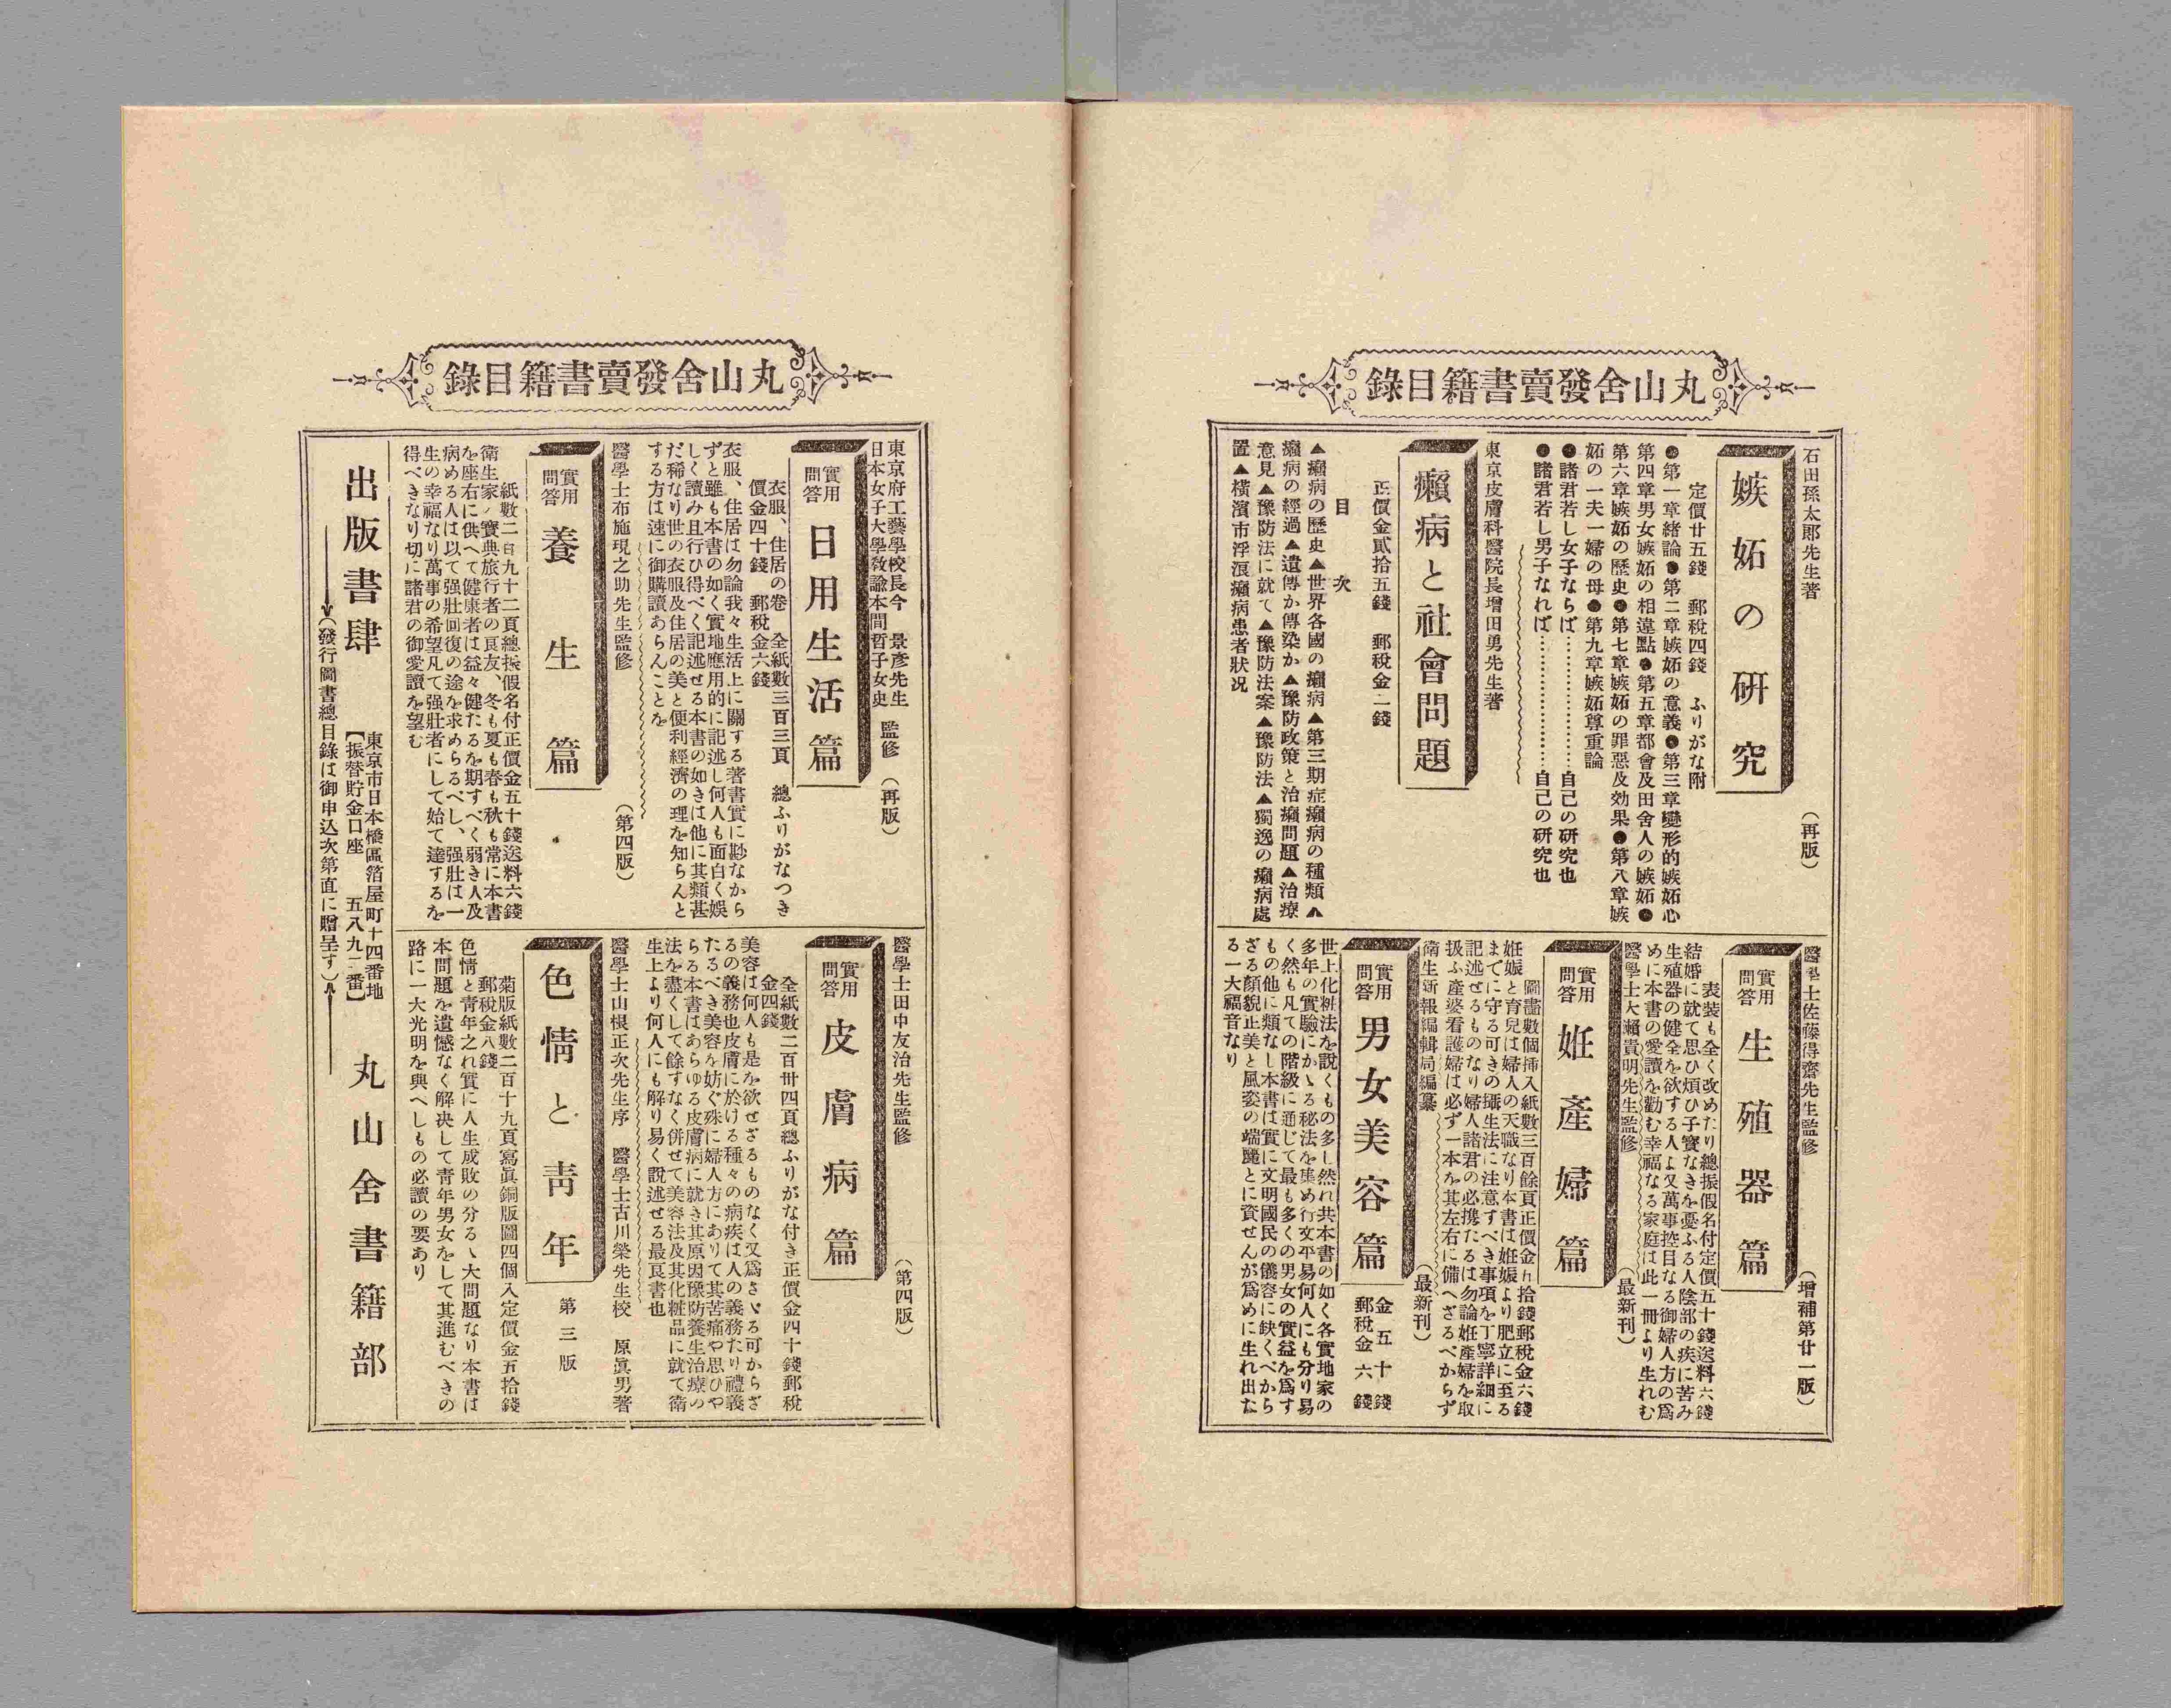 丸山舍發賣書籍目錄
石田孫太郎先生著
（再版）
嫉妬の研究
定價廿五錢　郵税四錢　ふりがな附
●第一章緒論●第二章嫉妬の意義●第三章變形的嫉妬心
第四章男女嫉妬の相違點●第五章都會及田舍人の嫉妬●
第六章嫉妬の歷史●第七章嫉妬の罪惡及効果●第八章嫉
妬の一夫一婦の母●第九章嫉妬尊重論
●諸君若し女子ならば…………………自己の研究也
●諸君若し男子なれば…………………自己の研究也
東京皮膚科醫院長增田勇先生著
癩病と社會問題
正價金貳拾五錢　郵税金二錢
目次
▲癩病の歷史▲世界各國の癩病▲第三期症癩病の種類▲
癩病の經過▲遺傳か傳染か▲豫防政策と治癩問題▲治療
意見▲豫防法に就て▲豫防法案▲豫防法▲獨逸の癩病處
置▲橫濱市浮浪癩病患者狀况
醫學士佐藤得齋先生監修
（增補第廿一版）
實用問答
生殖器篇
表裝も全く改めたり總振假名付定價五十錢送料六錢
結婚に就て思ひ煩ひ子寳なきを憂ふる人陰部の疾に苦み
生殖器の健全を欲する人よ又萬事控目なる御婦人方の爲
めに本書の愛讀を勸む幸福なる家庭は此一冊より生れむ
醫學士大瀬貴明先生監修
（最新刊）
實用問答
姙產婦篇
圖畵數個挿入紙數三百餘頁正價金五拾錢郵税金六錢
姙娠と育兒は婦人の天職なり本書は姙娠より肥立に至る
までに守る可きの攝生法に注意すべき事項を丁寧詳細に
記述せるものなり婦人諸君の必携たるは勿論姙產婦を取
扱ふ產婆看護婦は必ず一本を其左右に備へざるべからず
衛生新報編輯局編纂
（最新刊）
實用問答
男女美容篇
金五十錢
郵税金六錢
世上化粧法を說くもの多し然れ共本書の如く各實地家の
多年の實驗にかゝる秘法を集め行文平易何人にも分り易
く然も凡ての階級に通じて最も多くの男女の實益を爲す
もの他に類なし本書は實に文明國民の儀容に缺くべから
ざる顏貌正美と風姿の端麗とに資せんが爲めに生れ出た
る一大福音なり
丸山舍發賣書籍目錄
東京府工藝學校長今　景彥先生
日本女子大學敎諭本間哲子女史
監修
（再版）
實用問答
日用生活篇
衣服、住居の卷　全紙數三百三頁　總ふりがなつき
價金四十錢　郵税金六錢
衣服、住居は勿論我々生活上に關する著書實に尠なから
ずと雖も本書の如く實地應用的に記述し何人も面白く娛
しく讀み且行ひ得べく記述せる本書の如きは他に其類甚
だ稀なり世の衣服及住居の美と便利經濟の理を知らんと
する方は速に御購讀あらんことを
醫學士布施現之助先生監修
（第四版）
實用問答
養生篇
紙數二百九十二頁總振假名付正價金五十錢送料六錢
衛生家ノ寳典旅行者の良友、冬も夏も春も秋も常に本書
を座右に供へて健康者は益々健たるを期すべく弱き人及
病める人は以て强壯回復の途を求めらるべし、强壯は一
生の幸福なり萬事の希望凡て强壯者にして始て達するを
得べきなり切に諸君の御愛讀を望む
醫學士田中友治先生監修
（第四版）
實用問答
皮膚病篇
全紙數二百卅四頁總ふりがな付き正價金四十錢郵税
金四錢
美容は何人も是を欲せざるものなく又爲さゞる可からざ
るの義務也皮膚に於ける種々の病疾は人の義務たり禮義
たるべき美容を妨ぐ殊に婦人方にありて其苦痛や思ひや
らる本書はあらゆる皮膚病に就き其原因豫防養生治療の
法を盡くして餘すなく併せて美容法及其化粧品に就て衛
生上より何人にも解り易く說述せる最良書也
醫學士山根正次先生序　醫學士古川榮先生校　原眞男著
色情と靑年
第三版
菊版紙數二百十九頁寫眞銅版圖四個入定價金五拾錢
郵税金八錢
色情と靑年之れ實に人生成敗の分るゝ大問題なり本書は
本問題を遺憾なく解决して靑年男女をして其進むべきの
路に一大光明を與へしもの必讀の要あり
出版書肆
東京市日本橋區箔屋町十四番地
【振替貯金口座　五八九二番】
丸山舍書籍部
（發行圖書總目錄は御申込次第直に贈呈す）